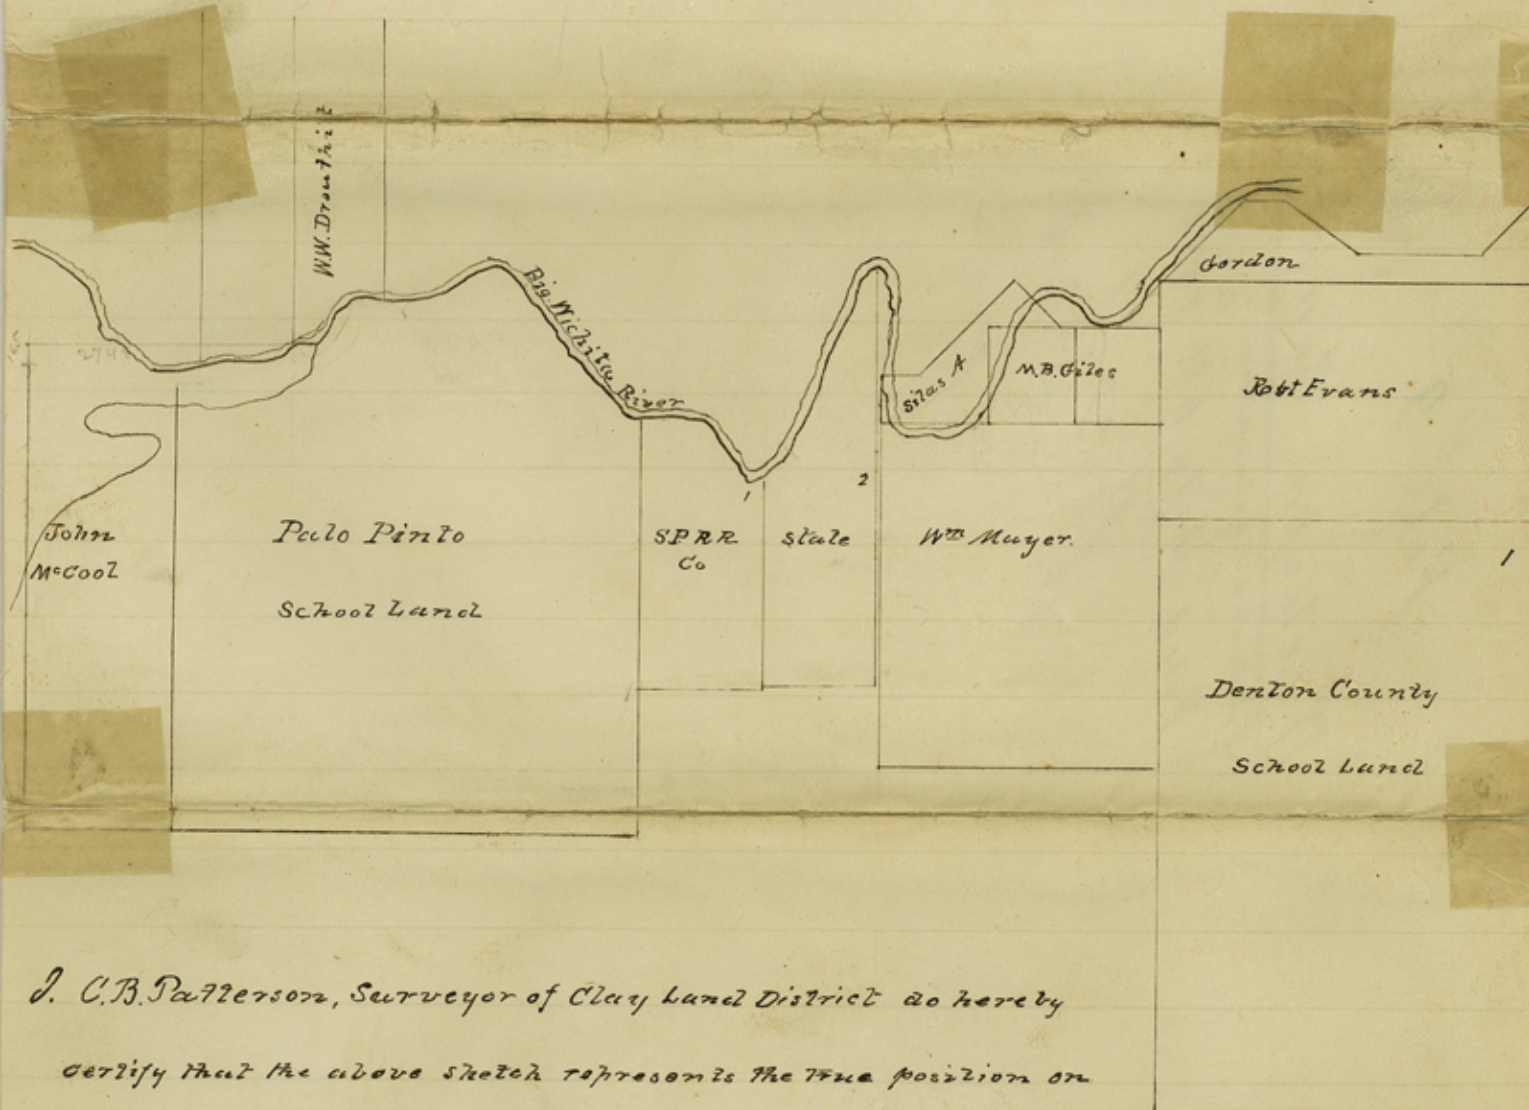 W.W. Drouthit
Gordon
Big Wichita River
Silas A
M.B. Giles
Robt Evans
1
2
John
McCool
Palo Pinto
School Land
SPRR
Co
State
Wm Mayer.
1
Denton County
School Land
I. C.B. Patterson, Surveyor of Clay Land District do hereby
certify that the above sketch represents the true position on